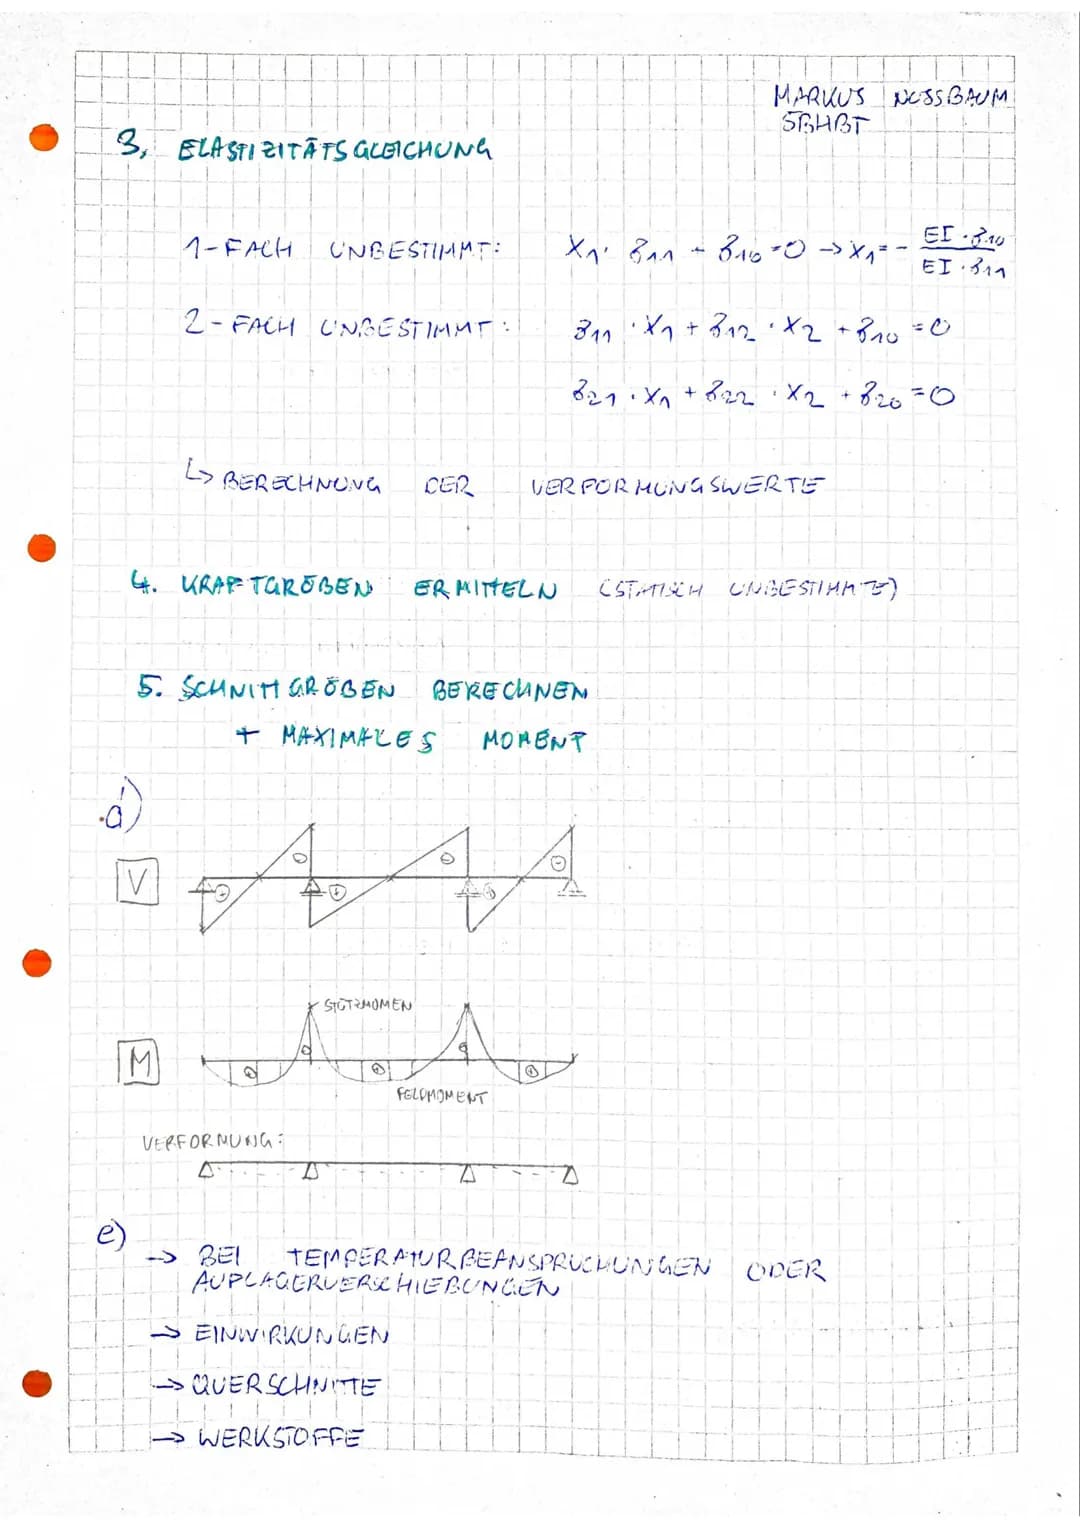 MARKUS NUSSBAUM
5BHBT
3, ELASTIZITÄTSGLEICHUNG
1-FACH UNBESTIMMT: X1 · δ11 + δ10 = 0 → X1 = - EI · δ10 / EI · δ11
2-FACH UNBESTIMMT: δ11 · X1 + δ12 · X2 + δ10 = 0
δ21 · X1 + δ22 · X2 + δ20 = 0
↳ BERECHNUNG DER VERFORMUNGSWERTE
4. KRAFTGRÖßEN ERMITTELN (STATISCH UNBESTIMMTE)
5. SCHNITTGRÖßEN BERECHNEN
+ MAXIMALES MOMENT
d)
V
+ - + - + -
STÜTZMOMEN
M
+ - + - +
FELDMOMENT
VERFORMUNG:
e)
→ BEI TEMPERATURBEANSPRUCHUNGEN ODER
AUFLAGERVERSCHIEBUNGEN
→ EINWIRKUNGEN
→ QUERSCHNITTE
→ WERKSTOFFE